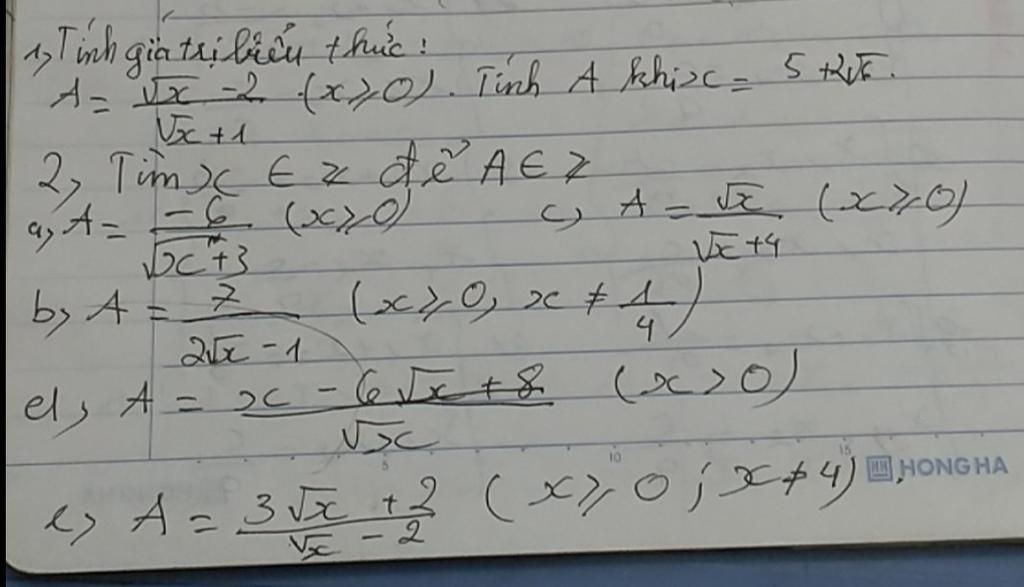 1, Tính giá trị biểu thức:
A = (√x - 2)/(√x + 1) (x ≥ 0). Tính A khi x = 5 + 2√6.
2, Tìm x ∈ Z để A ∈ Z
a, A = -6/(√x + 3) (x ≥ 0) c, A = √x/(√x + 4) (x ≥ 0)
b, A = 7/(2√x - 1) (x ≥ 0, x ≠ 1/4)
d, A = (x - 6√x + 8)/√x (x > 0)
5 10 15 HONG HA
e, A = (3√x + 2)/(√x - 2) (x ≥ 0; x ≠ 4)